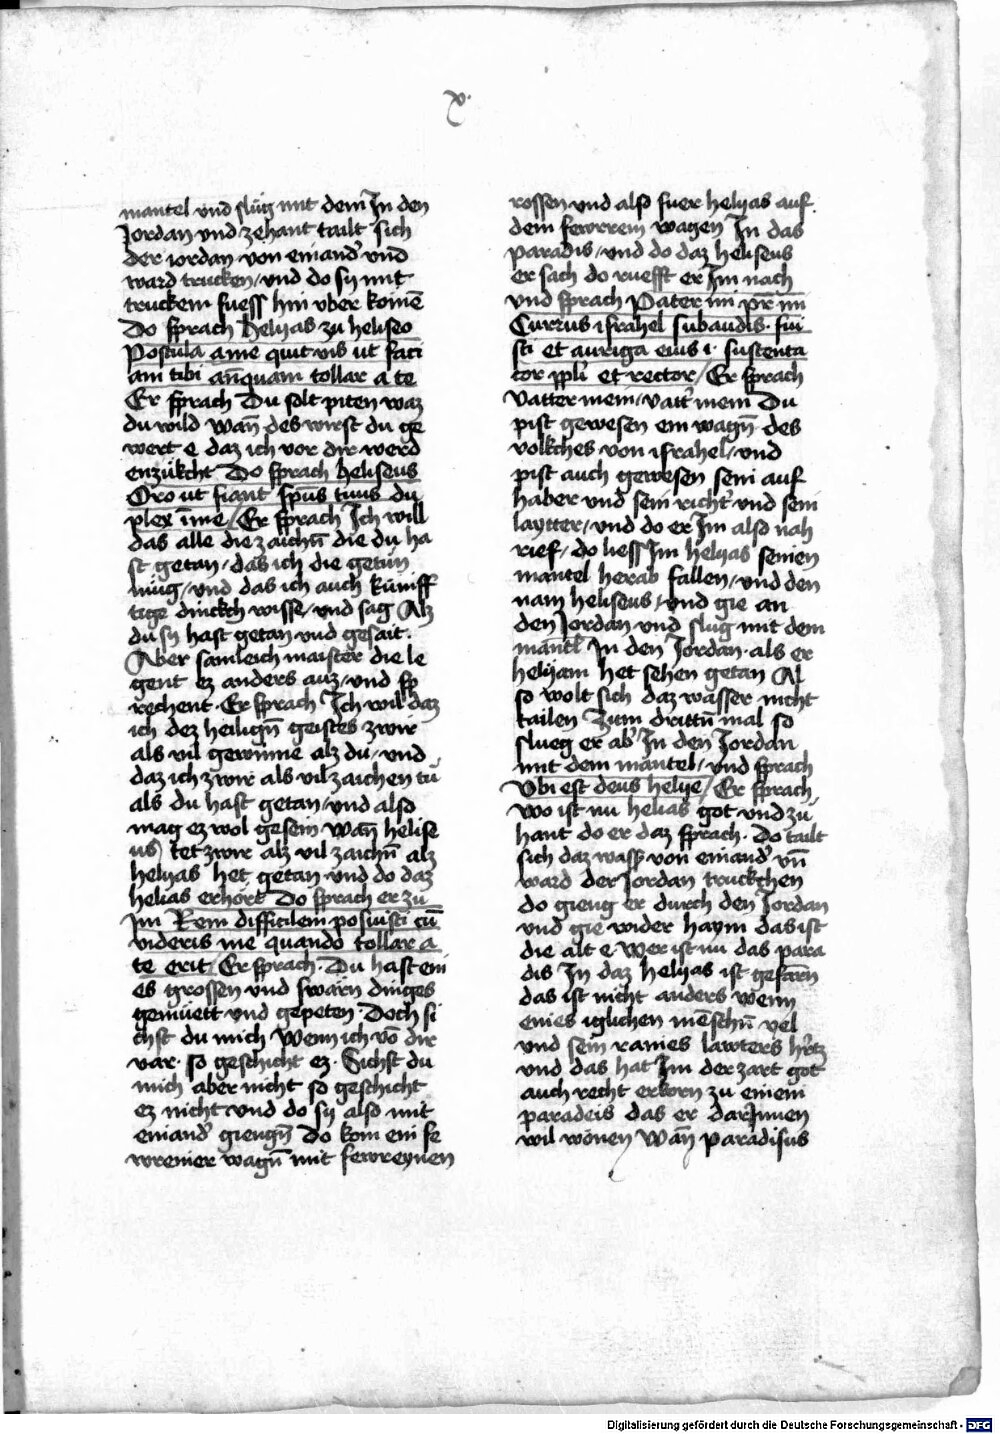 x.
mantel vnd slüg mit dem In den
Jordan vnd zehant tailt sich
der iordan von einand' vnd
ward trucken / vnd do sy mit
truckem fuess hin vber komē
Do sprach helyas zu heliseo
Postula a me quit vis ut faci
am tibi an̄quam tollar a te
Er sprach Du solt piten waz
du wild wan̄ des wirst du ge
wert e daz ich vor dir werd
enzükcht Do sprach heliseus
Oro ut fiant sp̄us tuus du
plex ī me / Er sprach Ich will
das alle die zaichn̄ die du ha
st getan / das ich die getün
müg / vnd das ich auch künff
tige dinckch wisse / vnd sag Alz
du sy hast getan vnd gesait .
Aber samleich maister die le
gent ez anders auz / vnd sp
rechent . Er sprach Ich wil daz
ich dez heilign̄ geistes zwir
als vil gewinne alz du / vnd
daz ich zwir als vil zaichen tü
als du hast getan / vnd also
mag ez wol gesein wan̄ helise
us tet zwir alz vil zaichn̄ alz
helyas het getan vnd do daz
helias erhört Do sprach er zu
Im Rem difficilem posuisti cū
videris me quando tollar a
te erit / Er sprach . Du hast eini
es grossen vnd swärn dinges
gemüett vnd gepeten . Doch si
chst du mich wenn ich vō dir
var . so geschicht ez . Sichst du
mich aber nicht so geschicht
ez nicht vnd do sy also mit
einand' giengn̄ Do kom ein fe
wreiner wagn̄ mit fewreynen
rossen vnd also fuer helyas auf
dem fewrrem wagen In das
paradis / vnd do daz heliseus
er sach do ruefft er Im nach
vnd sprach Pater mi pr̄ mi
Currus israhel subaudis . fui
sti et auriga eius i . sustenta
tor ppli et rector / Er sprach
Vatter mein / vatt' mein Du
pist gewesen ein wagn̄ des
volkches von israhel / vnd
pist auch gewesen sein auf
haber vnd sein richt' vnd sein
laytter / vnd do er Im also nah
rief / do liess Im helyas seinen
mantel herab fallen / vnd den
nam heliseus / vnd gie an
den Jordan vnd slug mit dem
māntl In den Jordan . als er
helyam het sehen getan Al
so wolt sich daz wasser nicht
tailen Zum drittn̄ mal so
slueg er ab' In den Jordan
mit dem mantel / vnd sprach
Vbi est deus helye / Er sprach
wo ist nu helias got vnd zü
hant do er daz sprach . Do tailt
sich daz wass' von einand' vn̄
ward der Jordan truckchen
do gieng er durch den Jordan
vnd gie wider haym das ist
die alt e wer ist nu das para
dis In daz helyas ist gefarn̄
das ist nicht anders wenn
eines iglichen mēschn̄ vel
vnd sein raines lawters h'rtz
vnd das hat Im der zart got
auch recht erkorn zu einem
paradeis das er darInnen
wil wonen wan̄ paradisus
Digitalisierung gefördert durch die Deutsche Forschungsgemeinschaft - DFG